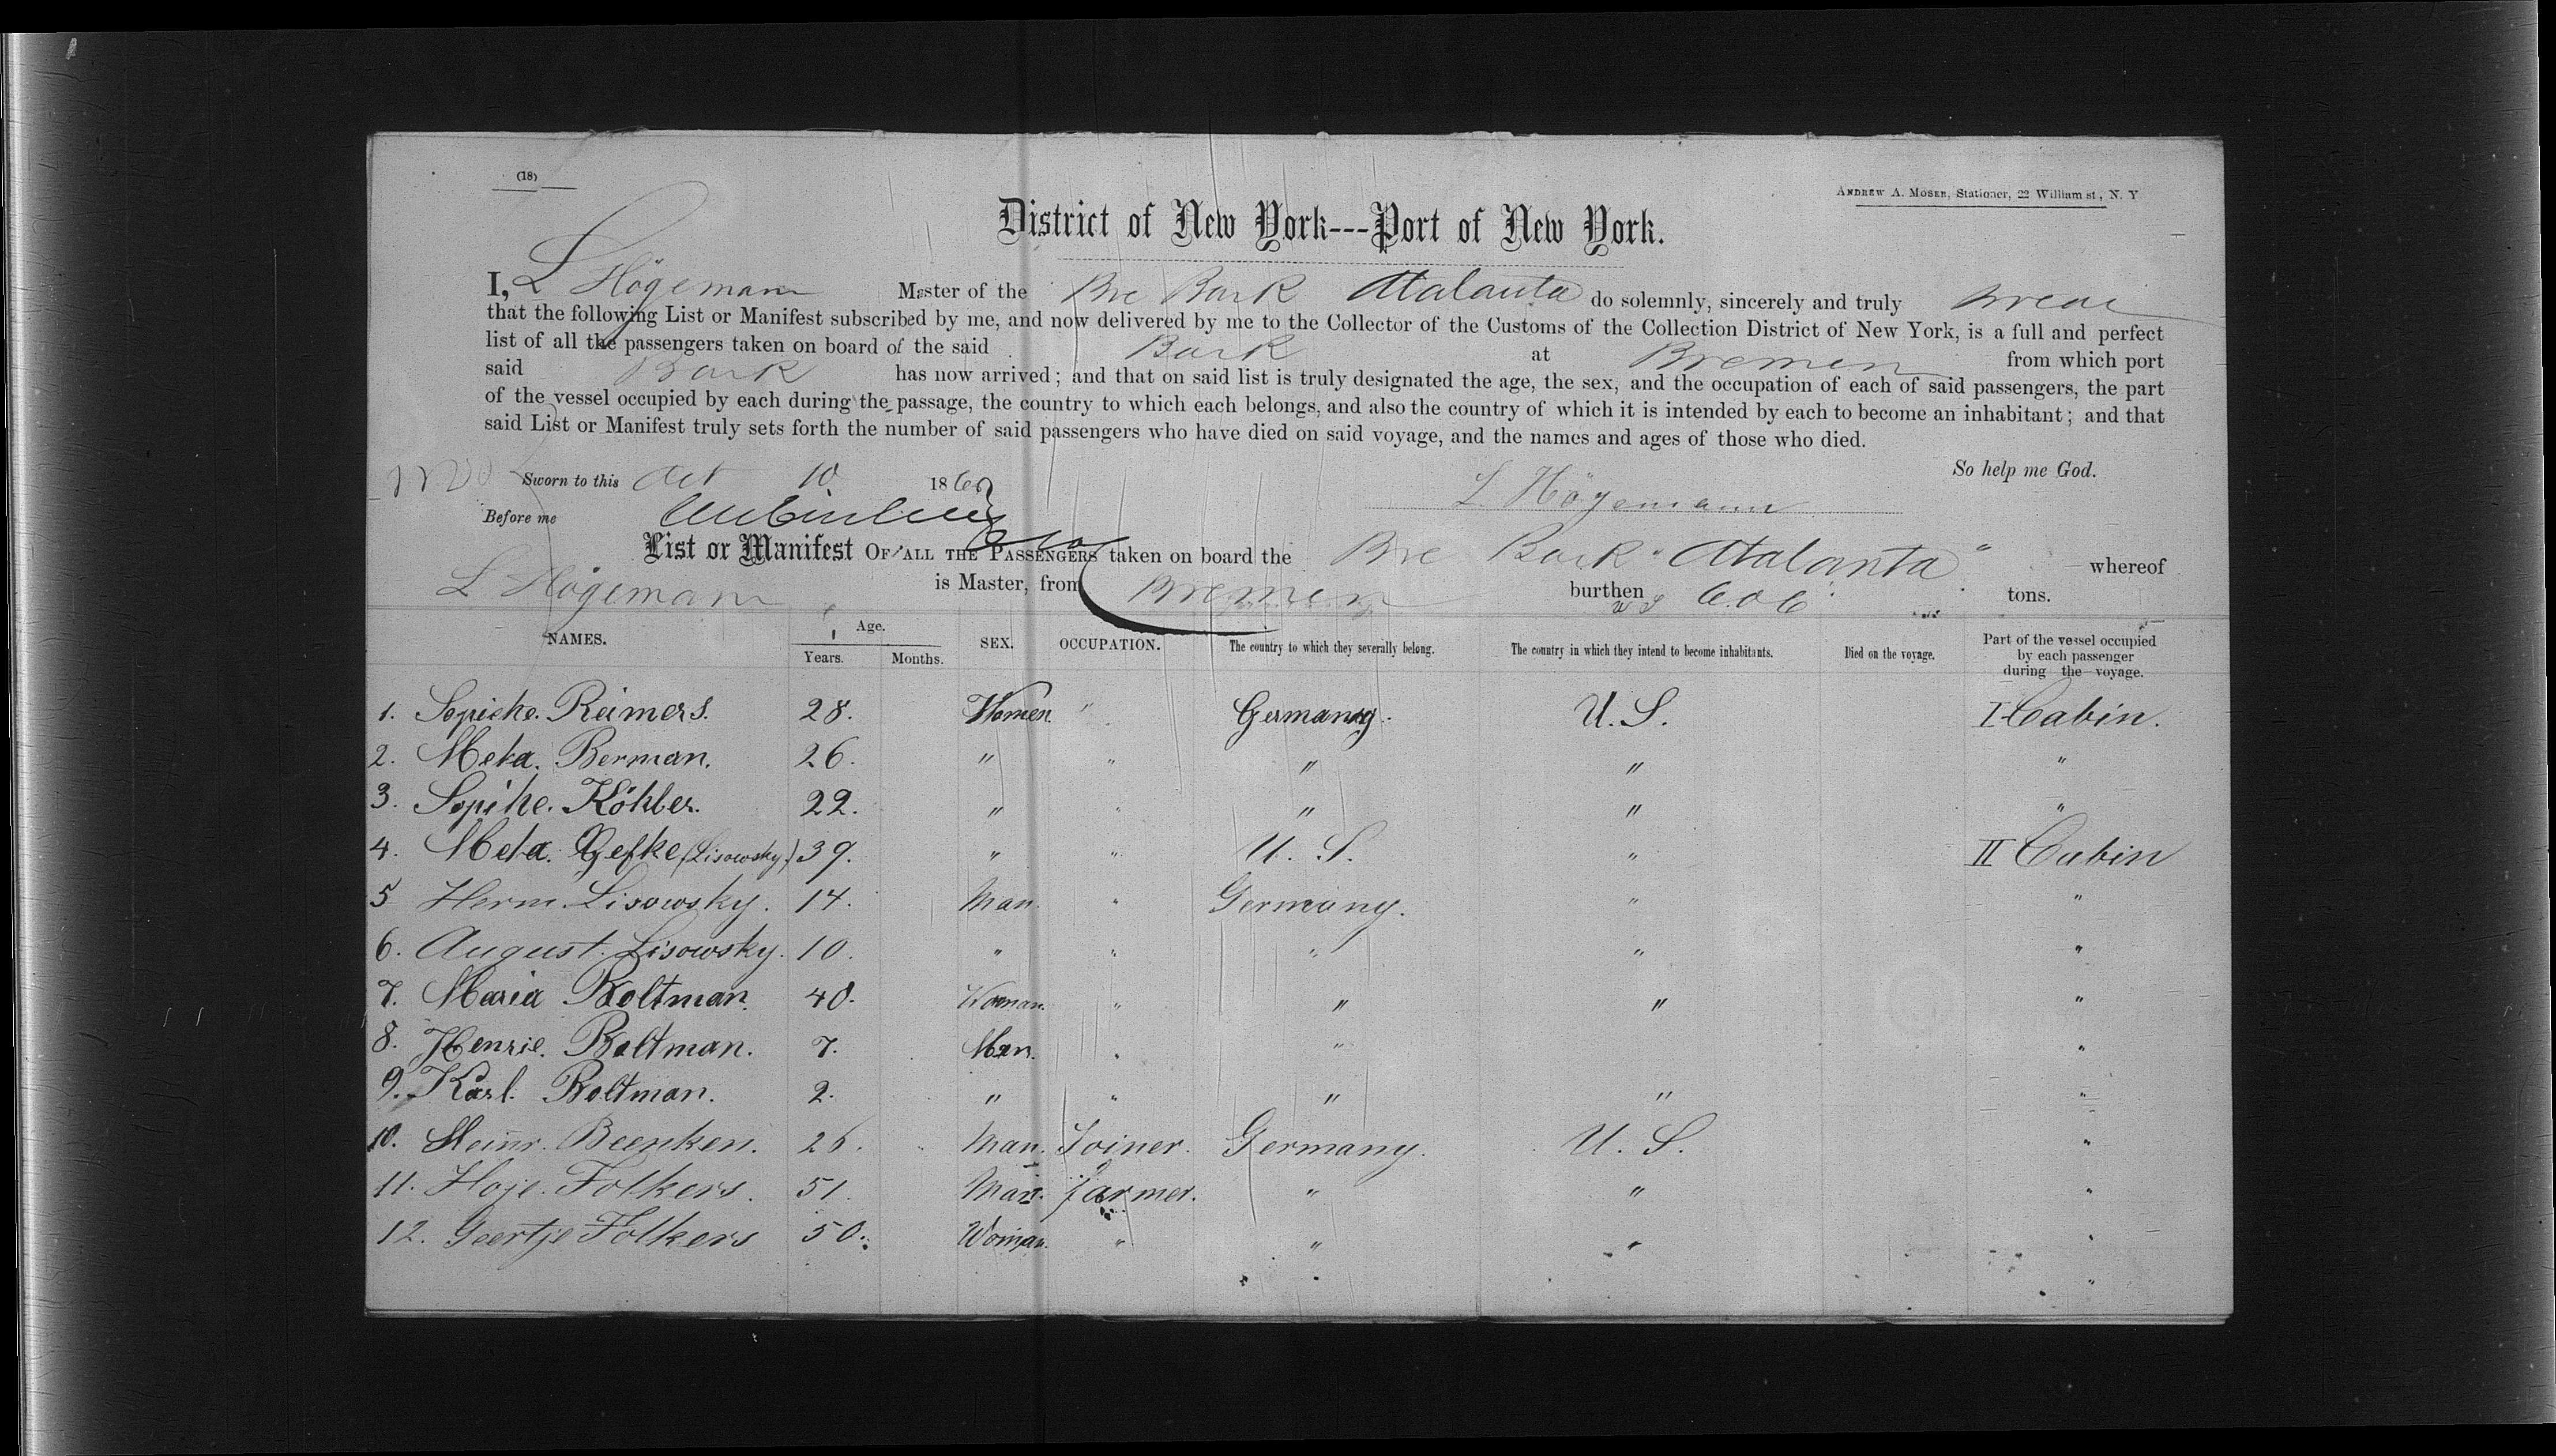 (18)
ANDREW A. MOSER, Stationer, 22 William st, N. Y
District of New York---Port of New York.
I, L Högemann Master of the Bre Bark Atalanta do solemnly, sincerely and truly swear
that the following List or Manifest subscribed by me, and now delivered by me to the Collector of the Customs of the Collection District of New York, is a full and perfect
list of all the passengers taken on board of the said Bark at Bremen from which port
said Bark has now arrived; and that on said list is truly designated the age, the sex, and the occupation of each of said passengers, the part
of the vessel occupied by each during the passage, the country to which each belongs, and also the country of which it is intended by each to become an inhabitant; and that
said List or Manifest truly sets forth the number of said passengers who have died on said voyage, and the names and ages of those who died.
So help me God.
Sworn to this Oct 10 186
L. Högemann
Before me
List or Manifest OF ALL THE PASSENGERS taken on board the Bre Bark "Atalanta" whereof
L Högemann is Master, from Bremen burthen tons.
NAMES. Age. Years. Months. SEX. OCCUPATION. The country to which they severally belong. The country in which they intend to become inhabitants. Died on the voyage. Part of the vessel occupied by each passenger during the voyage.
1. Sopiehe. Reimers. 28. Women " Germany. U. S. I Cabin.
2. Meta. Berman. 26. " " " " "
3. Sopihe. Köhler. 22. " " " " "
4. Meta. Gefke (Lisowsky.) 39. " " U. S. " II Cabin
5 Herm. Lisowsky. 14. Man. " Germany. " "
6. August. Lisowsky. 10. " " " " "
7. Maria Boltman. 40. Woman. " " " "
8. Henrie. Boltman. 7. Man. " " "
9. Karl. Boltman. 2. " " " " "
10. Heinr. Beenken. 26. Man. Joiner. Germany. U. S. "
11. Hoje. Folkers. 51. Man. Farmer. " " "
12. Geertje Folkers 50. Woman. " " " "
"